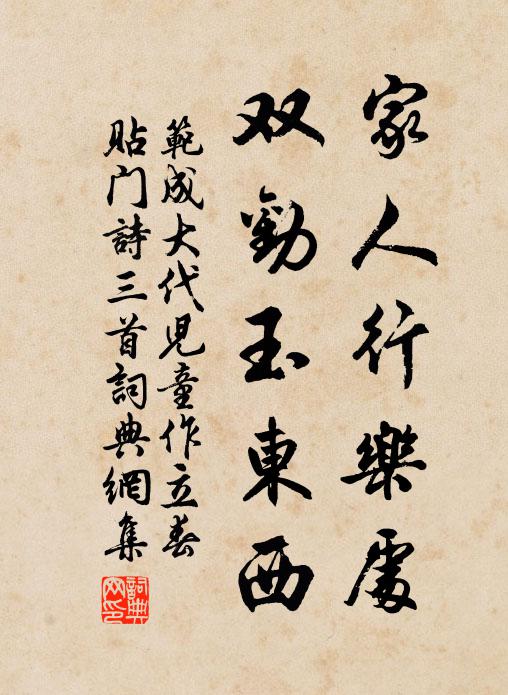 家人行樂處
双勸玉東西
範成大代兒童作立春
貼门詩三首詞典網集
詞典網印